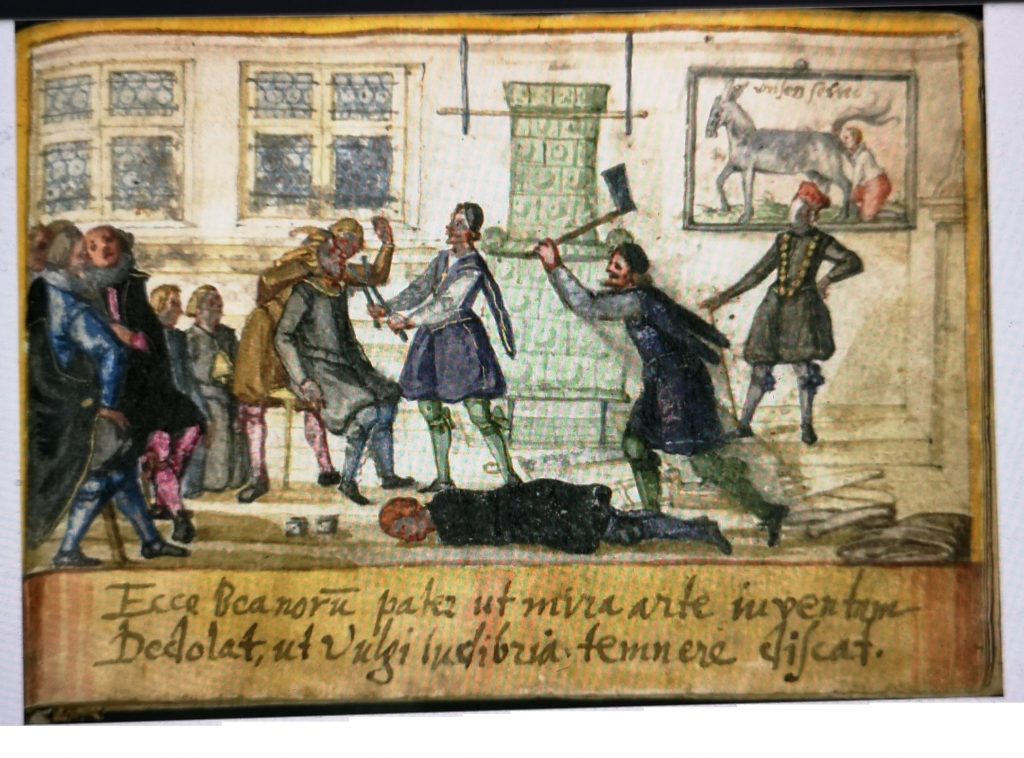 Ecce Beanorū pater ut mira arte iuventam
Dedolat, ut Vulgi ludibria temnere discat.